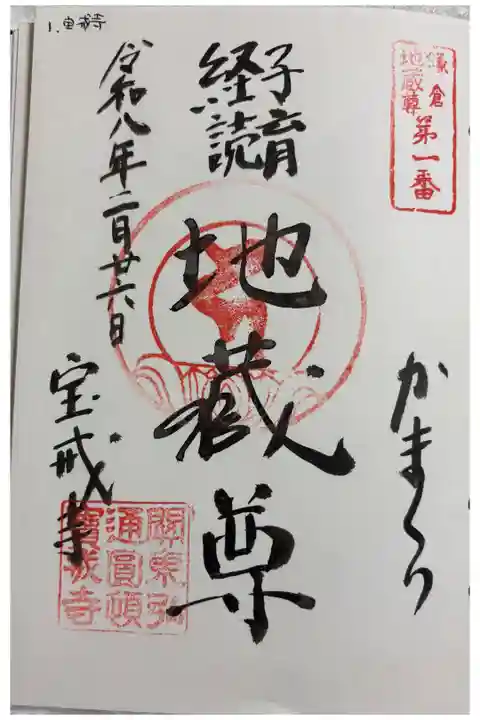 1.宝戒寺
鎌倉
地蔵尊
第一番
かまくら
子育
経読
地蔵尊
令和八年二月廿六日
宝戒寺
関東弘
通圓頓
寳戒寺